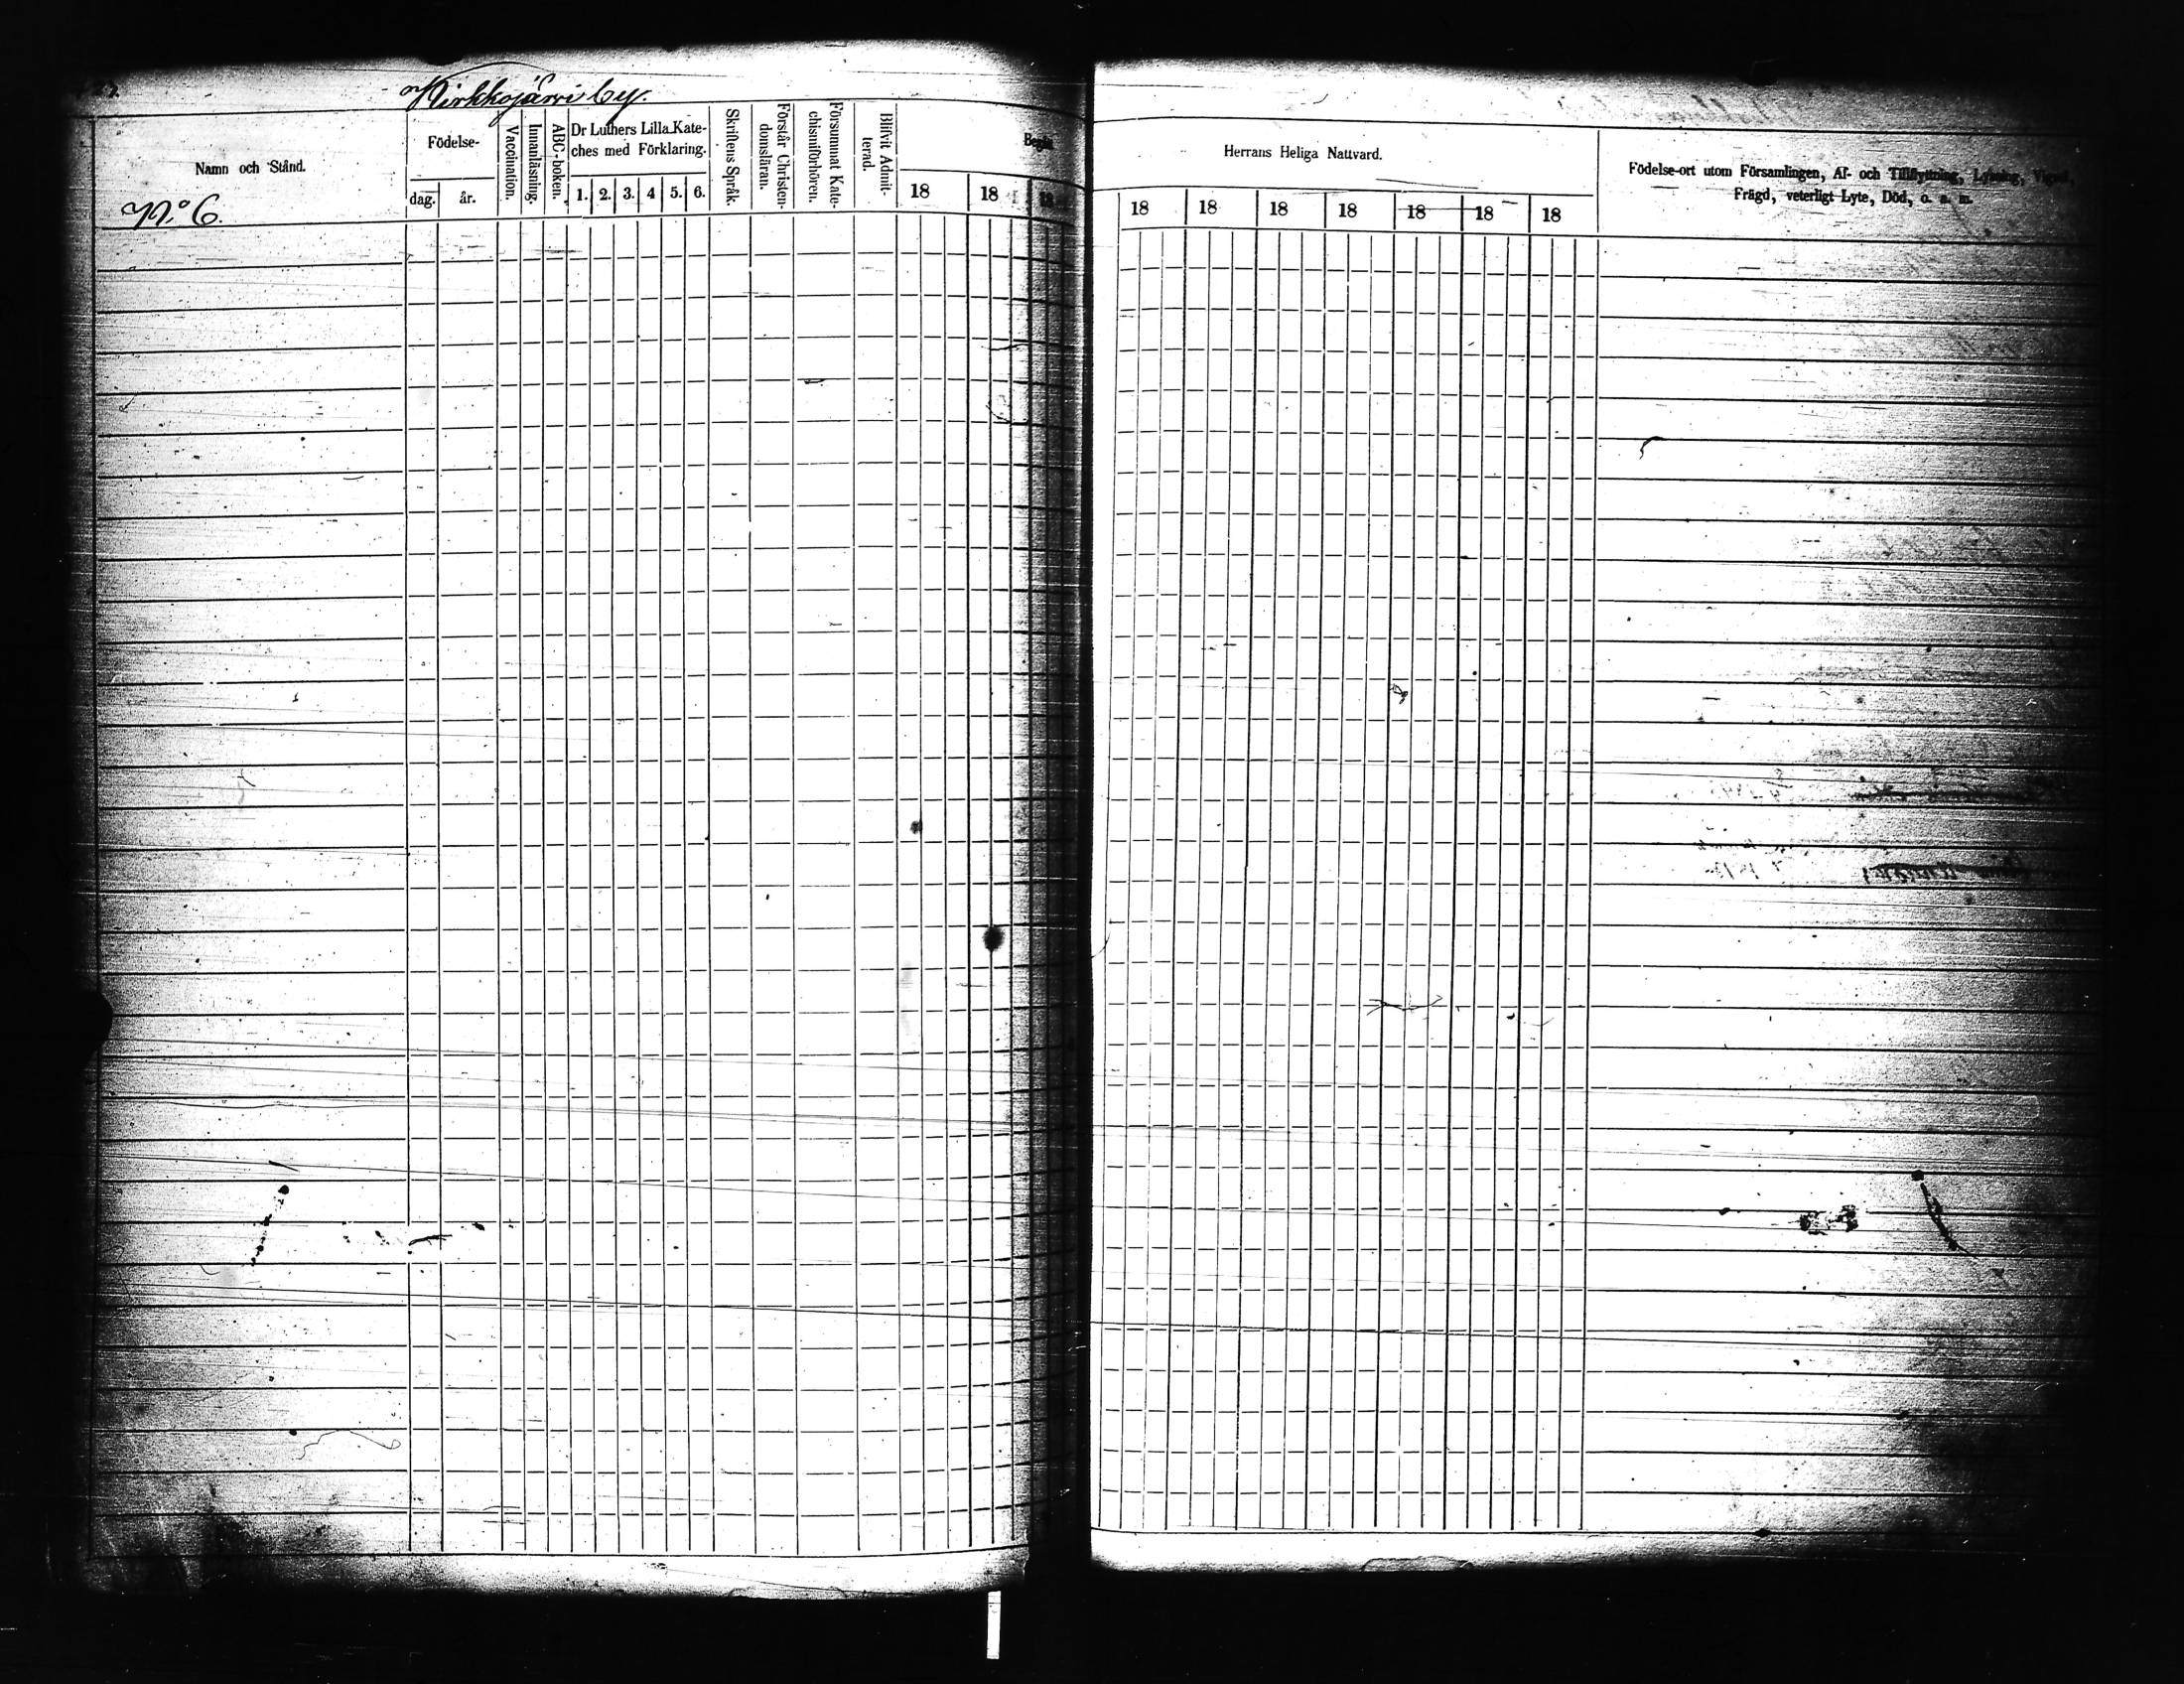 Kirkkojärvi by.
Namn och Stånd.
N:o 6.
Födelse-
dag.
år.
Vaccination.
Innanläsning.
ABC-boken.
Dr Luthers Lilla Kate-
ches med Förklaring.
1. 2. 3. 4 5. 6.
Skriftens Språk.
Förstår Christen-
domsläran.
Försummat Kate-
chismiförhören.
Blifvit Admit-
terad.
Begått
18 18 18
Herrans Heliga Nattvard.
18 18 18 18 18 18 18
Födelse-ort utom Församlingen, Af- och Tillflyttning, Lysning, Vigsel,
Frägd, veterligt Lyte, Död, o. s. m.